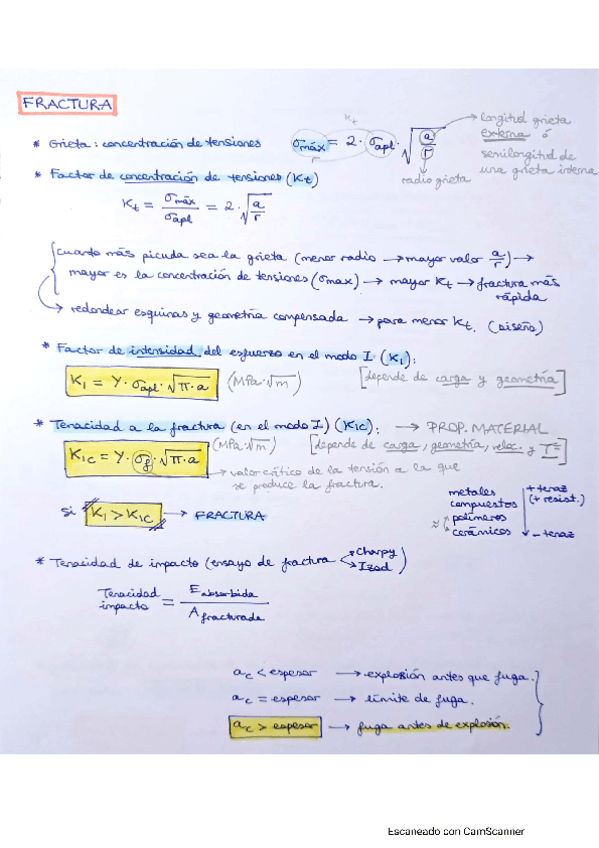 FRACTURA
* Grieta: concentración de tensiones
σmáx = 2 · σapl · √(a/r)
Kt
longitud grieta
externa ó
semilongitud de
una grieta interna
radio grieta
* Factor de concentración de tensiones (Kt)
Kt = σmáx/σapl = 2 · √(a/r)
Cuanto más picuda sea la grieta (menor radio → mayor valor a/r) →
mayor es la concentración de tensiones (σmax) → mayor Kt → fractura más
rápida
→ redondear esquinas y geometría compensada → para menor Kt. (Diseño)
* Factor de intensidad del esfuerzo en el modo I (K1):
K1 = Y · σapl · √(π·a) (MPa·√m) [depende de carga y geometría]
* Tenacidad a la fractura (en el modo I) (K1C): → PROP. MATERIAL
K1C = Y · σf · √(π·a) (MPa·√m) [depende de carga, geometría, veloc. y Tª]
→ valor crítico de la tensión a la que
se produce la fractura.
si K1 > K1C → FRACTURA
metales
compuestos
≈ polímeros
cerámicos
+ tenaz
(+ resist.)
- tenaz
* Tenacidad de impacto (ensayo de fractura Charpy
Izod)
Tenacidad
impacto = Eabsorbida / Afracturada
ac < espesor → explosión antes que fuga.
ac = espesor → límite de fuga.
ac > espesor → fuga antes de explosión.
Escaneado con CamScanner